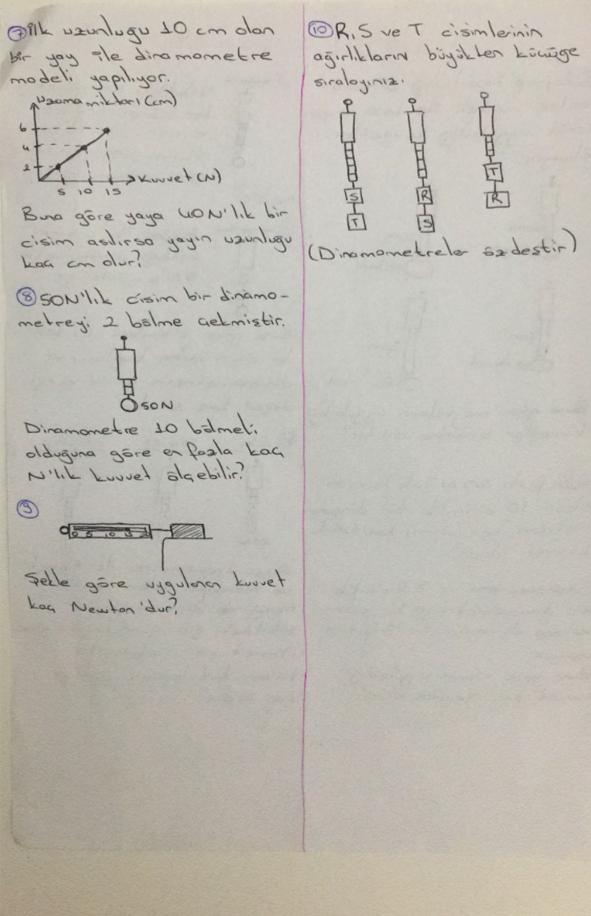 7) İlk uzunluğu 10 cm olan
bir yay ile dinamometre
modeli yapılıyor.
Uzama miktarı (cm)
6
4
2
5 10 15
Kuvvet (N)
Buna göre yaya 40N'lik bir
cisim asılırsa yayın uzunluğu
kaç cm olur?
8) 50N'lik cisim bir dinamo-
metreyi 2 bölme çekmiştir.
50N
Dinamometre 10 bölmeli
olduğuna göre en fazla kaç
N'lık kuvvet ölçebilir?
9)
0 5 10
Şekle göre uygulanan kuvvet
kaç Newton'dur?
10) R, S ve T cisimlerinin
ağırlıkların büyükten küçüğe
sıralayınız.
S
T
R
S
T
R
(Dinamometreler özdeştir)